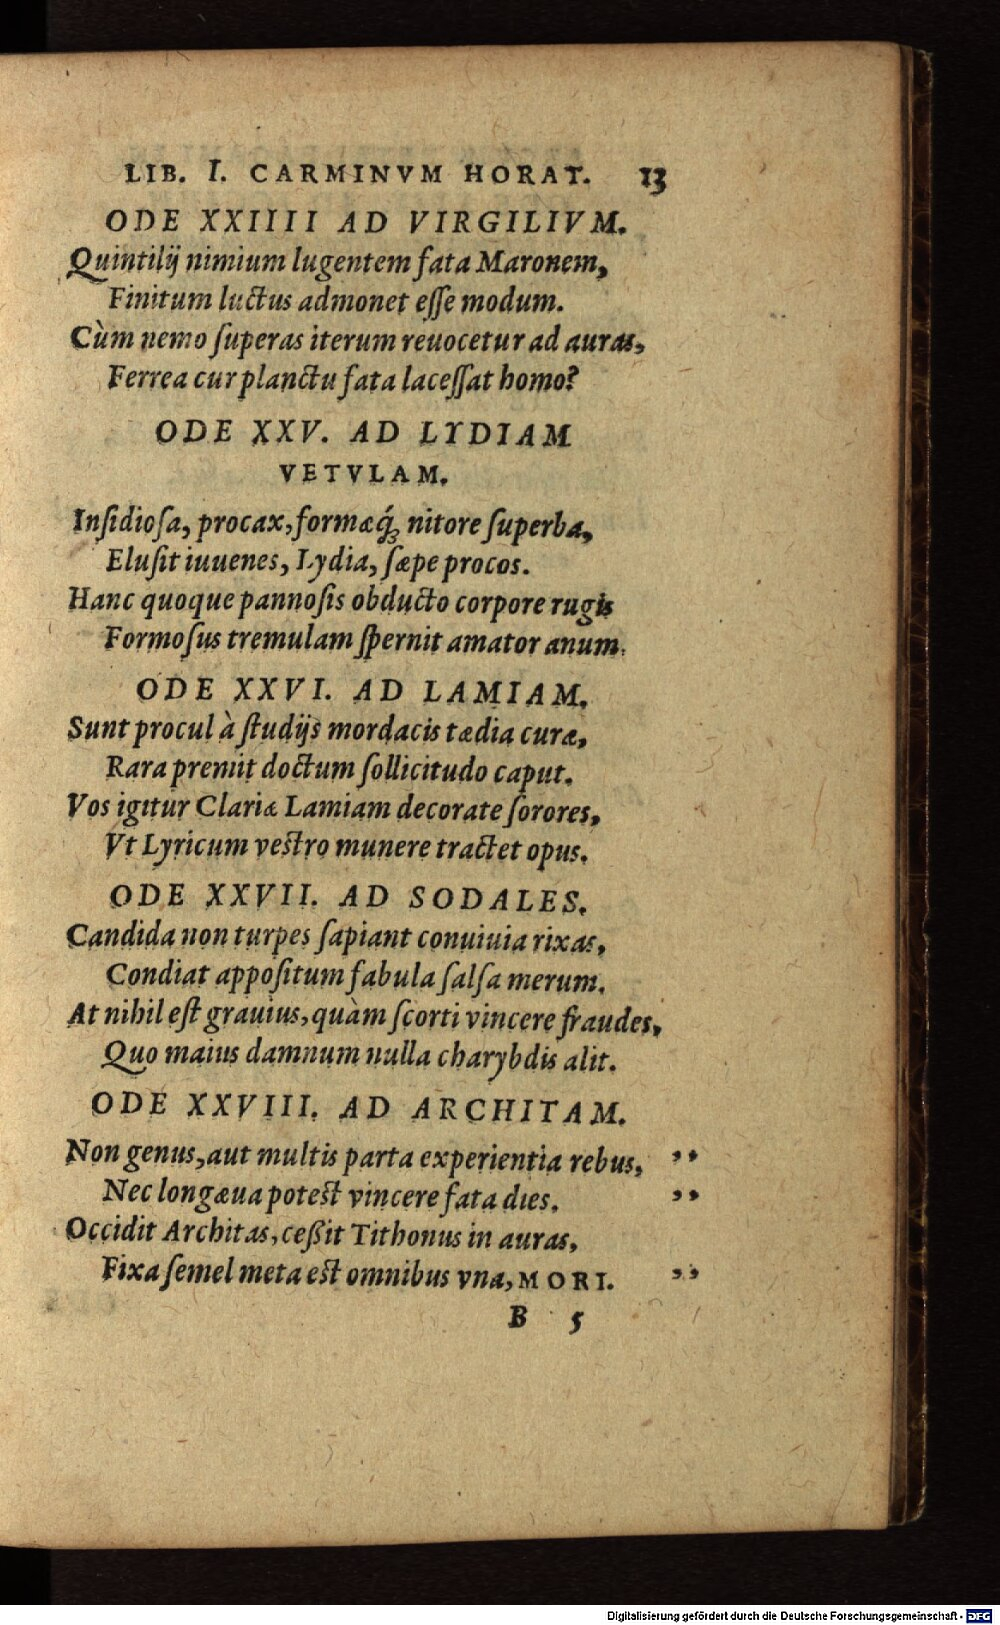 LIB. I. CARMINVM HORAT. 13
ODE XXIIII AD VIRGILIVM.
Quintilij nimium lugentem fata Maronem,
Finitum luctus admonet eſſe modum.
Cùm nemo ſuperas iterum reuocetur ad auras,
Ferrea cur planctu fata laceſſat homo?
ODE XXV. AD LYDIAM
VETVLAM.
Inſidioſa, procax, formæq́ꝫ nitore ſuperba,
Eluſit iuuenes, Lydia, ſæpe procos.
Hanc quoque pannoſis obducto corpore rugis
Formoſus tremulam ſpernit amator anum.
ODE XXVI. AD LAMIAM.
Sunt procul à ſtudijs mordacis tædia curæ,
Rara premit doctum ſollicitudo caput.
Vos igitur Clariæ Lamiam decorate ſorores,
Vt Lyricum veſtro munere tractet opus.
ODE XXVII. AD SODALES.
Candida non turpes ſapiant conuiuia rixas,
Condiat appoſitum fabula ſalſa merum.
At nihil eſt grauius, quàm ſcorti vincere fraudes,
Quo maius damnum nulla charybdis alit.
ODE XXVIII. AD ARCHITAM.
Non genus, aut multis parta experientia rebus, ”
Nec longæua poteſt vincere fata dies. ”
Occidit Architas, ceſſit Tithonus in auras,
Fixa ſemel meta eſt omnibus vna, MORI. ”
B 5
Digitalisierung gefördert durch die Deutsche Forschungsgemeinschaft - DFG